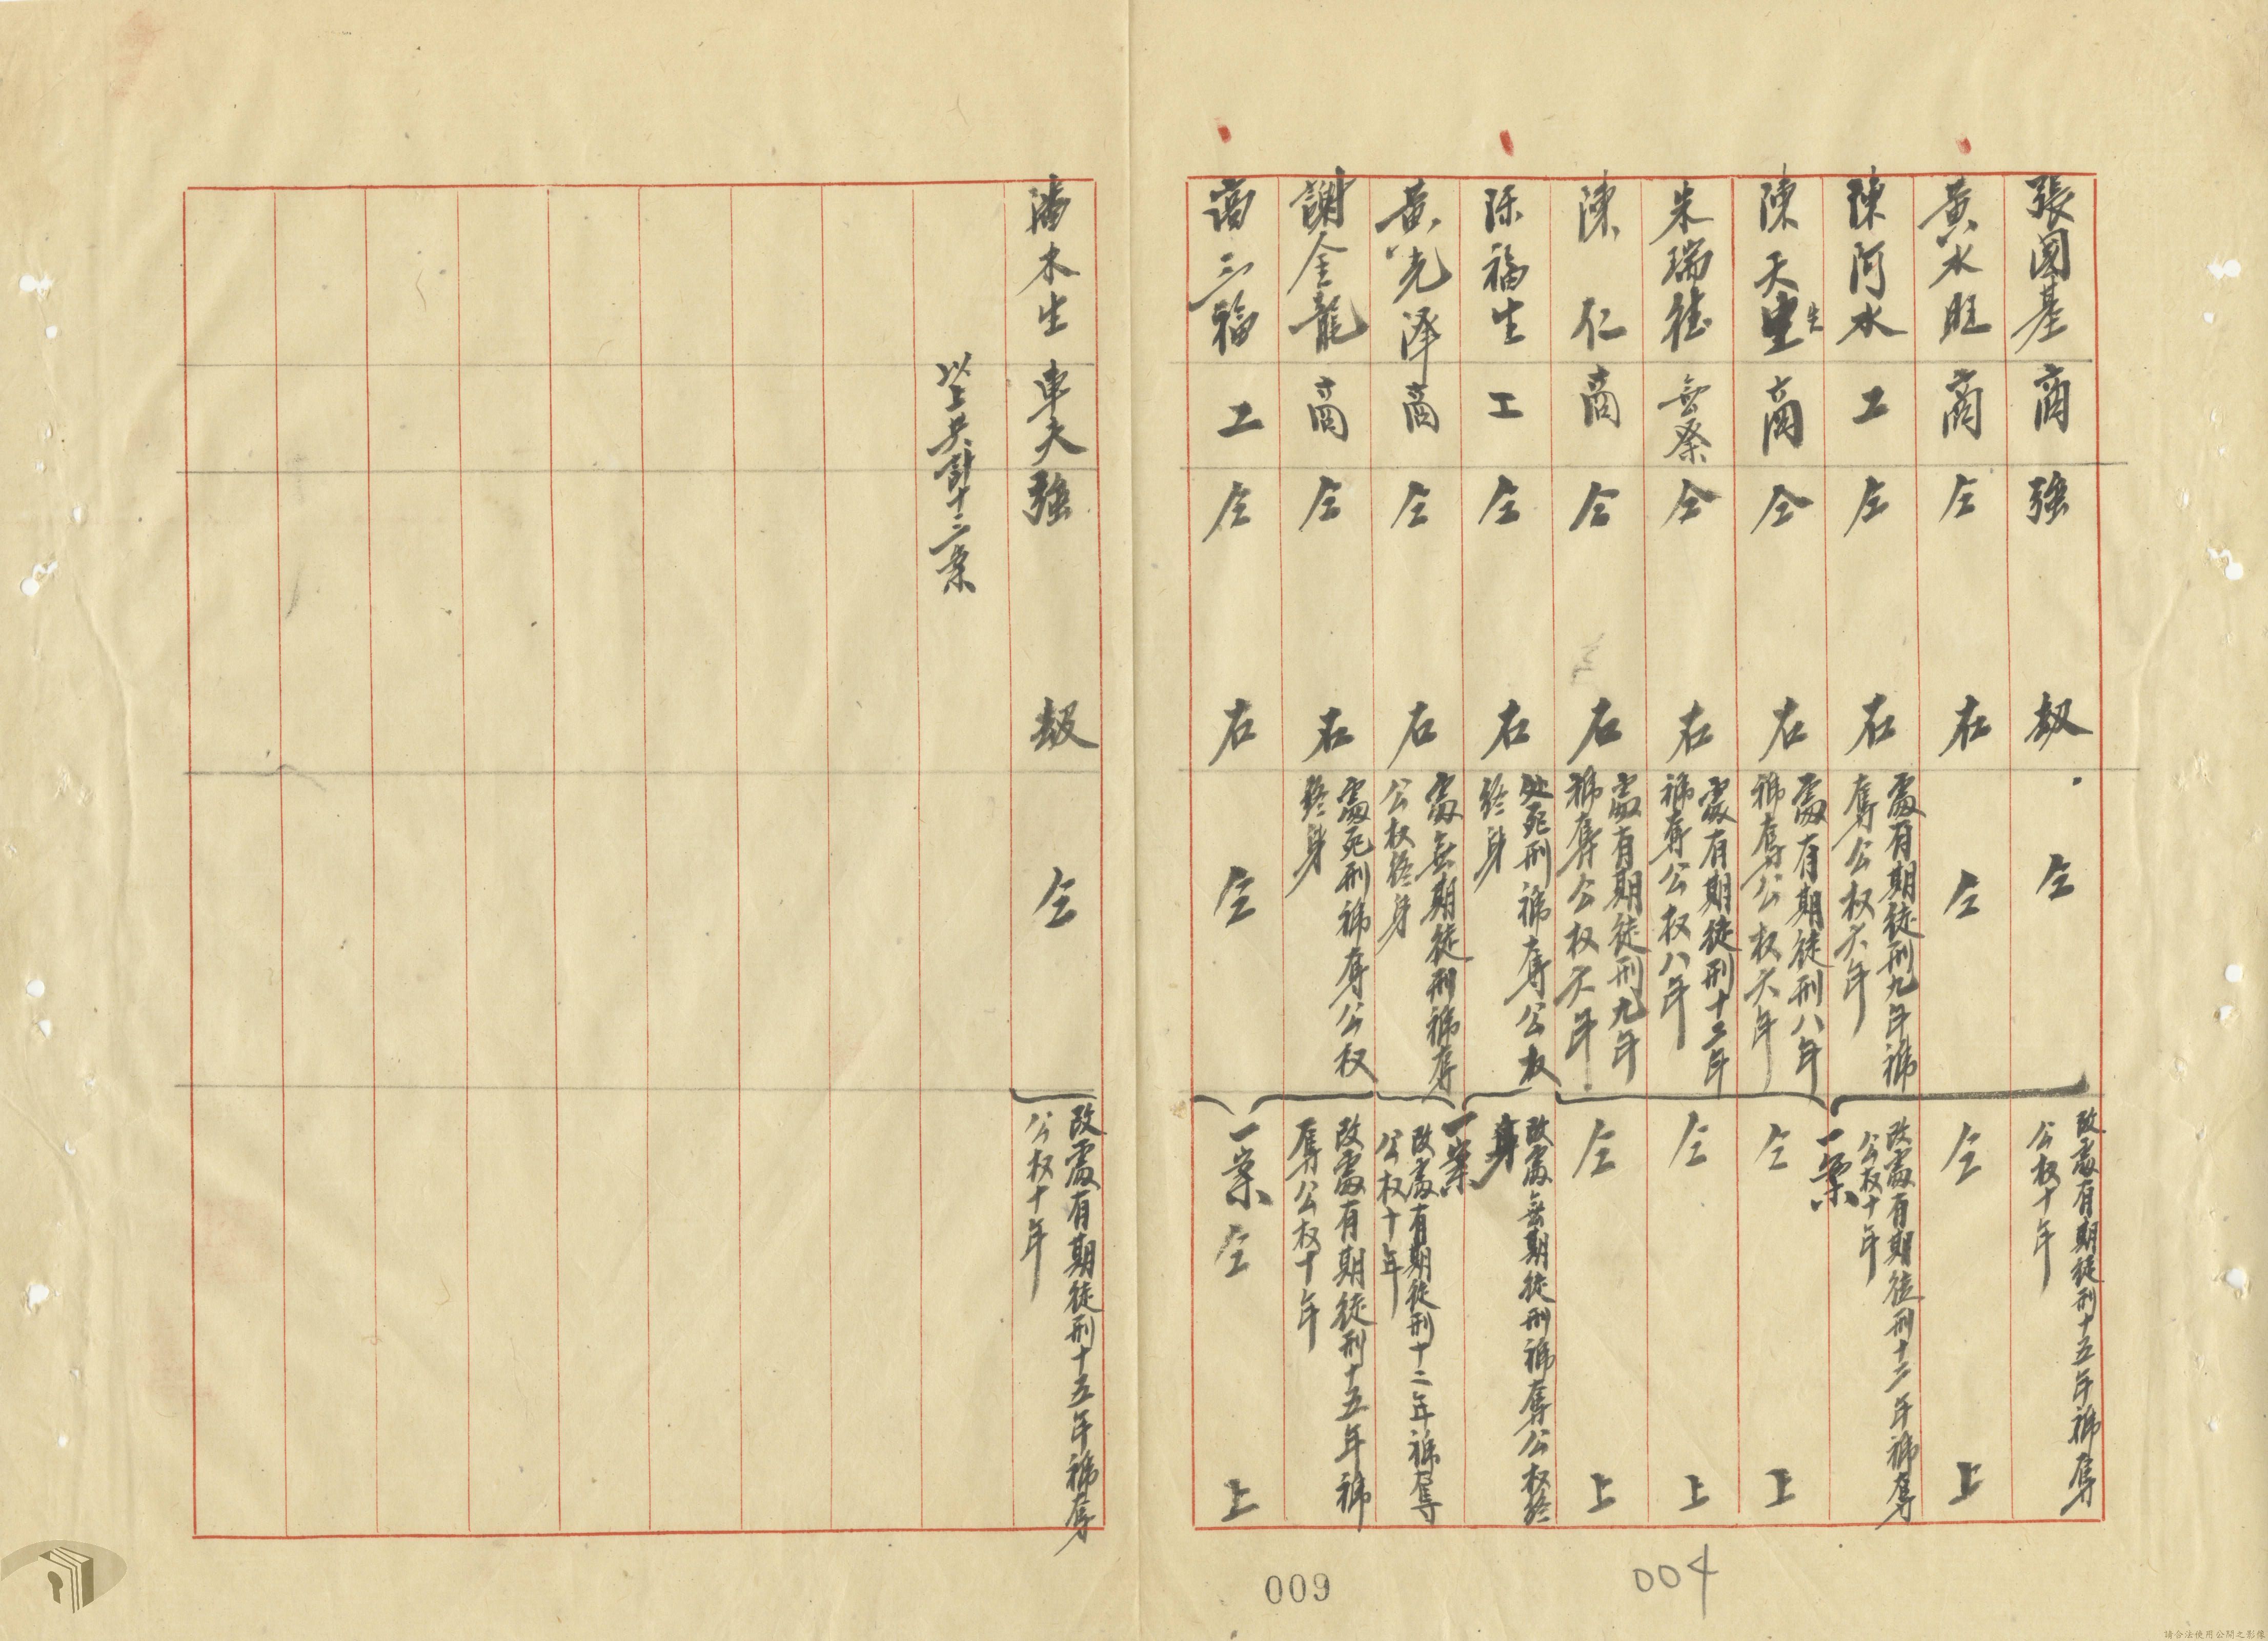 張國基 商 強劫 仝 改處有期徒刑十五年褫奪
公权十年
黃水旺 商 仝右 仝 仝上
陳阿水 工 仝右 處有期徒刑九年褫
奪公权六年 改處有期徒刑十二年褫奪
公权十年
一案
陳天生 商 仝右 處有期徒刑八年
褫奪公权六年 仝上
朱瑞徳 無業 仝右 處有期徒刑十二年
褫奪公权八年 仝上
陳仁 商 仝右 處有期徒刑九年
褫奪公权六年 仝上
陈福生 工 仝右 处死刑褫奪公权
終身 改處無期徒刑褫奪公权終
身
一案
黃光泽 商 仝右 處無期徒刑褫奪
公权終身 改處有期徒刑十二年褫奪
公权十年
謝金龍 商 仝右 處死刑褫奪公权
終身 改處有期徒刑十五年褫
奪公权十年
一案
高三福 工 仝右 仝 仝上
潘木生 車夫 強劫 仝 改處有期徒刑十五年褫奪
公权十年
以上共計十三案
009
004
請合法使用公開之影像